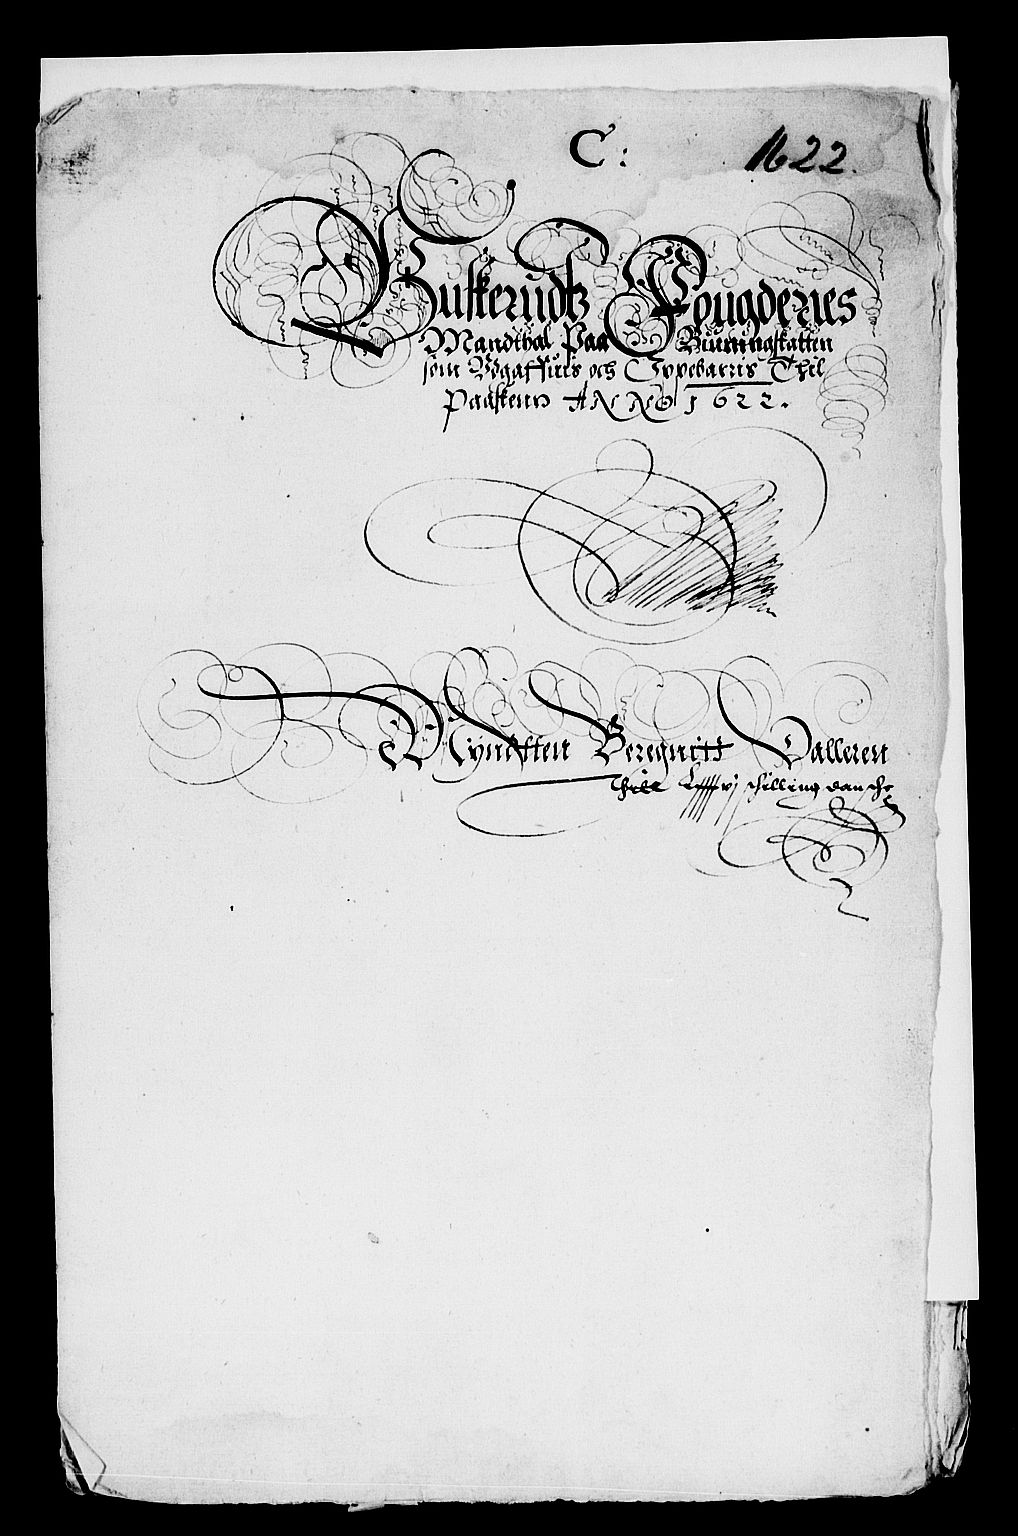 C: 1622.
Buskerudtz Fougderies
Mandthal Paa Biuningskatten
som Udgaffuis och Oppebarris Thil
Paaskenn ANNO 1622.
Myndften Beregnitt Dalleren
thill schilling dansche